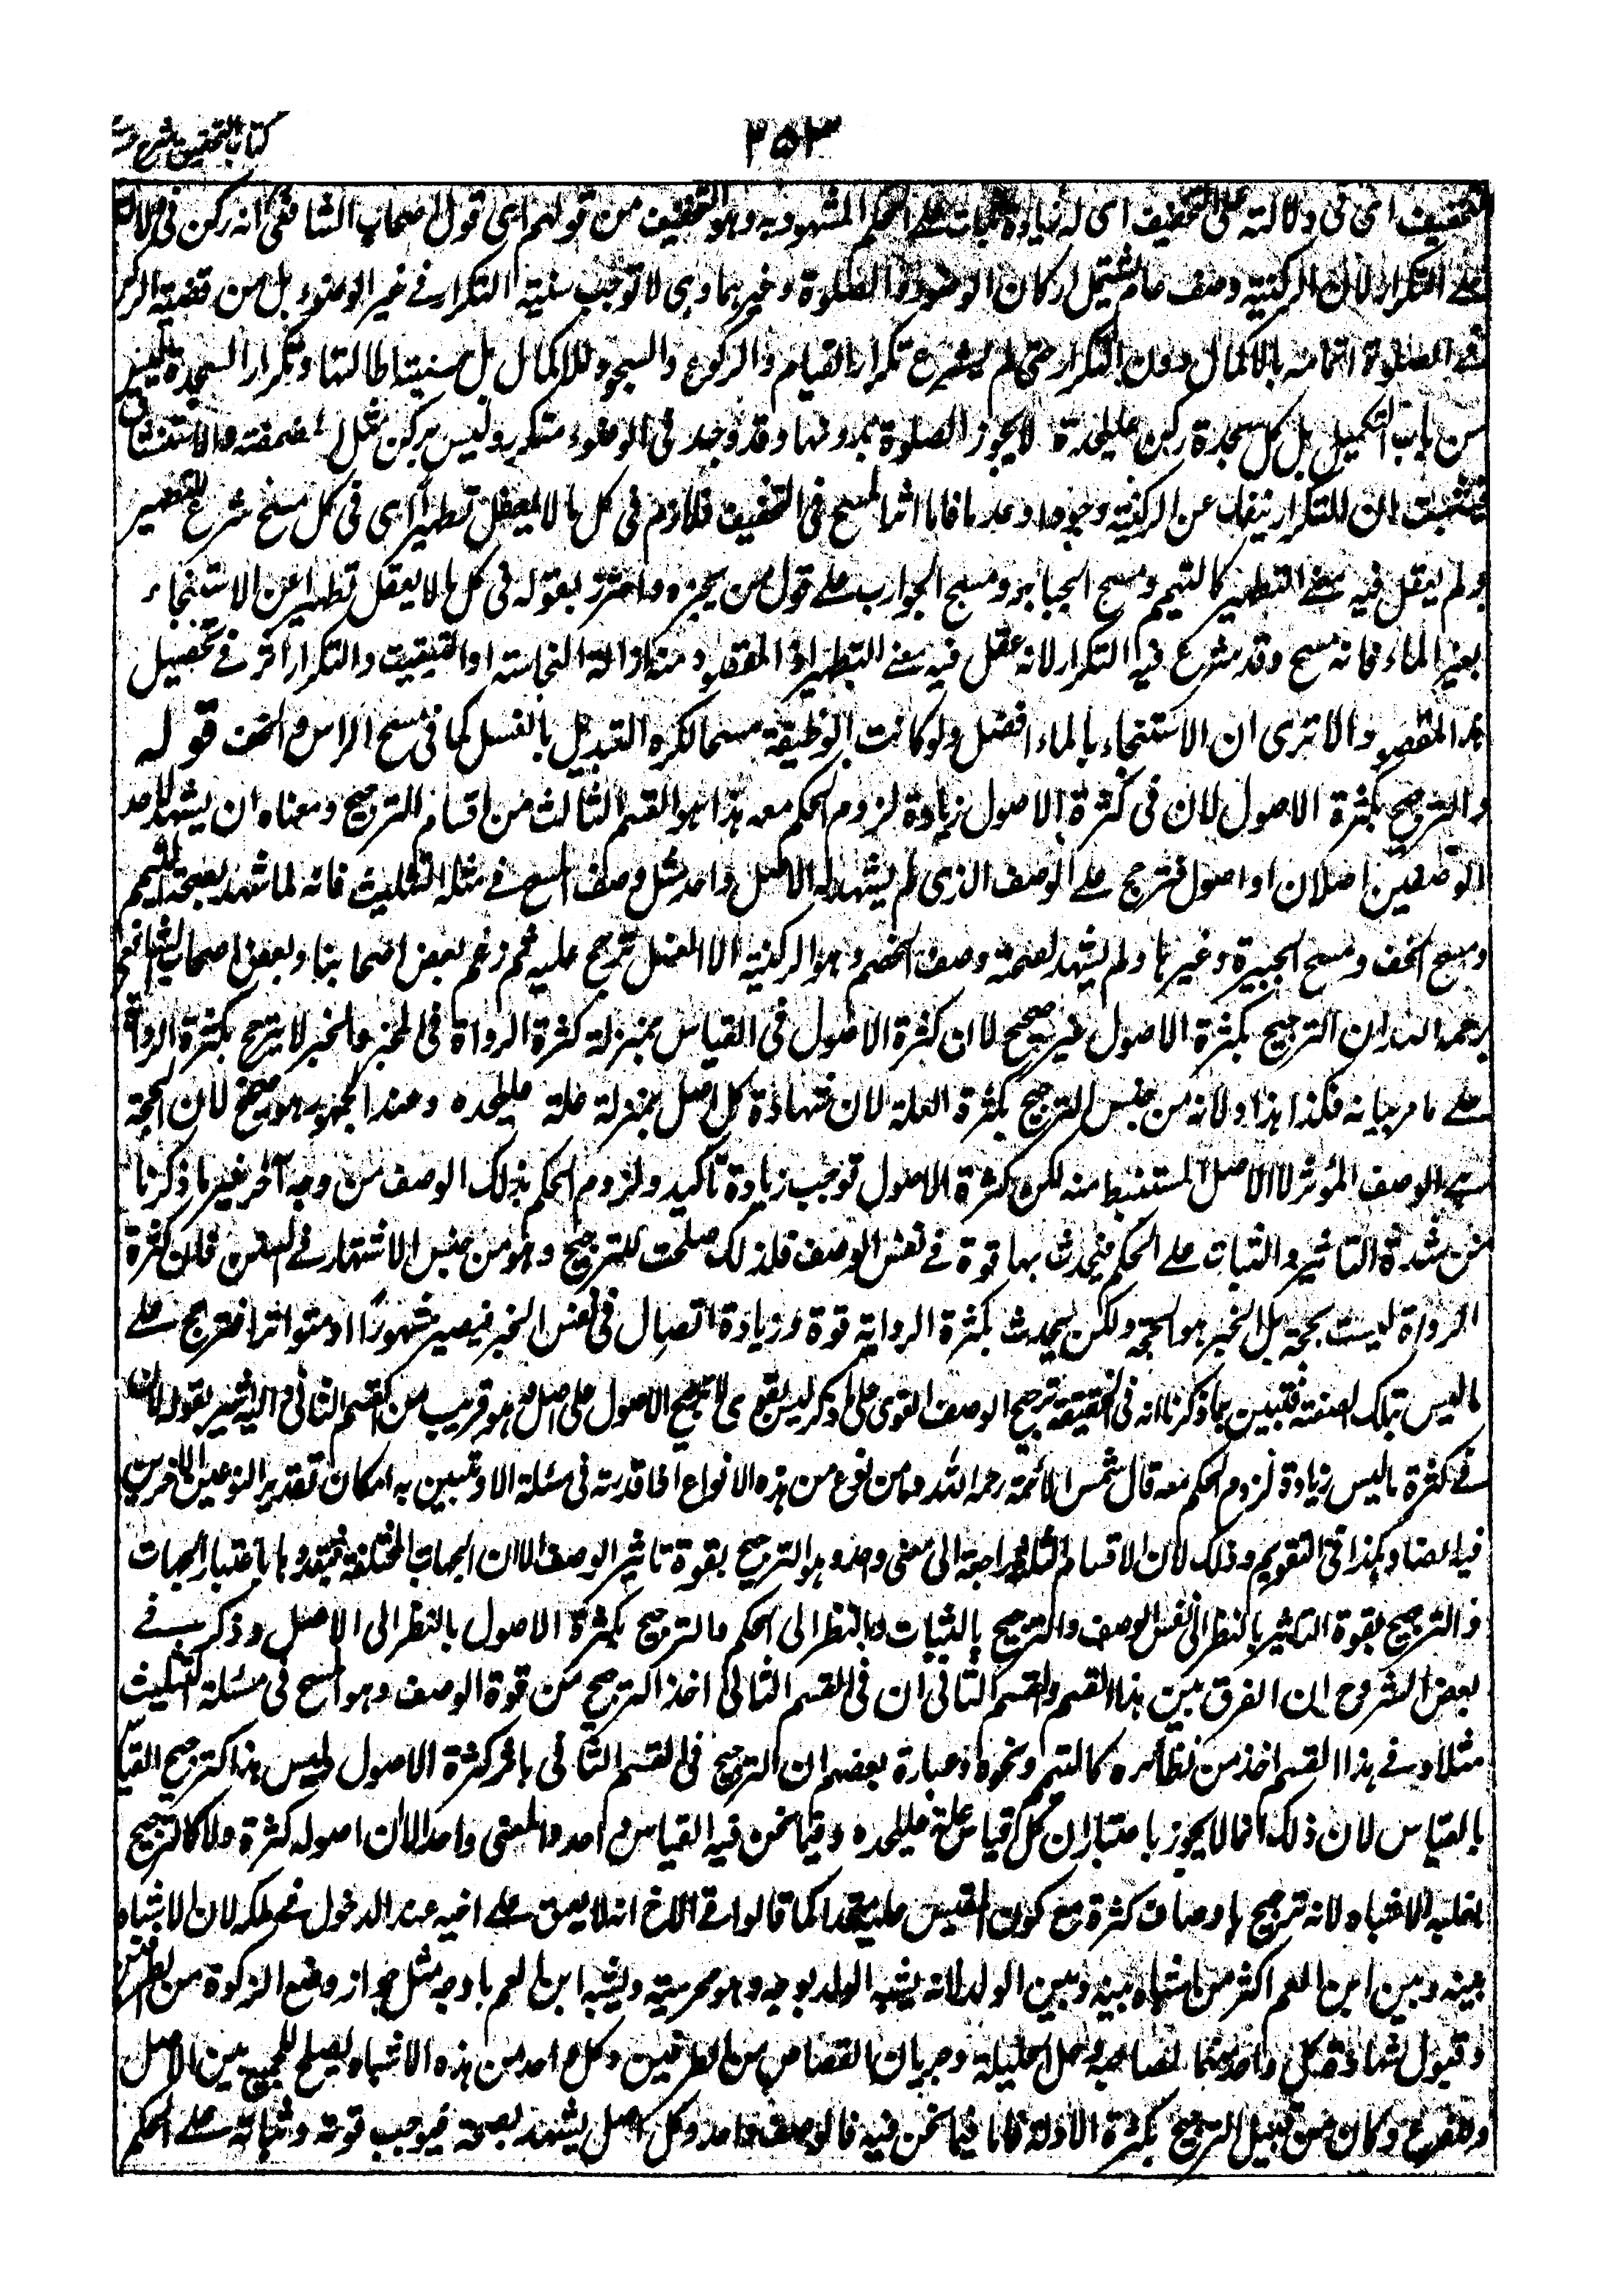 ٣٥٣
كتاب التحقيق شرح
التخفيف اى فى دلالته على التخفيف اى له زيادة ثبات على الحكم المشهود به وهو التخفيف من قولهم اى قول اصحاب الشافعى انه ركن فى دلالته
على التكرار لان الركنية وصف عام يشتمل اركان الوضوء والصلوة وغيرهما وهى لا توجب سنية التكرار فى غير الوضوء بل من قضية الركن
فى الصلوة اتمامه بالاكمال دون التكرار حتى لم يشرع تكرار القيام والركوع والسجود للاكمال بل سنيته اطالتها وتكرار السجدة ليس
من باب التكميل بل كل سجدة ركن عليحدة لا يجوز الصلوة بدونها وقد وجد فى الوضوء متكرر وليس بركن مثل المضمضة والاستنشاق
فثبت ان التكرار ينفك عن الركنية وجودا وعدما فاما اثر المسح فى التخفيف فلازم فى كل ما لا يعقل تطهيرا اى فى كل مسح شرع للتطهير
ولم يعقل فيه معنى التطهير كالتيمم ومسح الجبائر ومسح الجوارب على قول من يجيزه واحترز بقوله فى كل ما لا يعقل تطهيرا عن الاستنجاء
بغير الماء فانه مسح وقد شرع فيه التكرار لانه عقل فيه معنى التطهير اذ المقصود منه ازالة النجاسة او التخفيف والتكرار اثر فى تحصيل
هذا المقصود الا ترى ان الاستنجاء بالماء افضل ولو كانت الوظيفة مسحا لكره التبديل بالغسل كما فى مسح الراس والخف قوله
والترجيح بكثرة الاصول لان فى كثرة الاصول زيادة لزوم الحكم معه هذا هو القسم الثالث من اقسام الترجيح ومعناه ان يشهد لاحد
الوصفين اصلان او اصول فترجح على الوصف الذى لم يشهد له الا اصل واحد مثل وصف المسح فى مسئلة التثليث فانه لما شهد بصحته التيمم
ومسح الخف ومسح الجبيرة وغيرها ولم يشهد لصحة وصف الخصم وهو الركنية الا الغسل ترجح عليه ثم زعم بعض اصحابنا وبعض اصحاب الشافعى
رحمه الله ان الترجيح بكثرة الاصول غير صحيح لان كثرة الاصول فى القياس بمنزلة كثرة الرواة فى الخبر والخبر لا يترجح بكثرة الرواة
على ما مر بيانه فكذا هذا ولانه من جنس الترجيح بكثرة العلة لان شهادة كل اصل بمنزلة علة عليحده وعند الجمهور هو صحيح لان الحجة
هى الوصف المؤثر لا الاصل المستنبط منه لكن كثرة الاصول توجب زيادة تاكيد ولزوم الحكم بذلك الوصف من وجه آخر غير ما ذكرنا
من شدة التاثير والثبات على الحكم فيحدث بها قوة فى نفس الوصف فلذلك صلحت للترجيح وهو من جنس الاشتهار فى السنن فان كثرة
الرواة ليست بحجة بل الخبر هو الحجة ولكن يحدث بكثرة الرواية قوة وزيادة اتصال فى نفس الخبر فيصير مشهورًا او متواترا فترجح على
ما ليس بتلك الصفة فتبين بما ذكرنا انه فى الحقيقة ترجيح الوصف القوى على ما ليس بقوى لا ترجيح الاصول على اصل وهو قريب من القسم الثانى واليه اشير بقوله لان
فى كثرة ما ليس زيادة لزوم الحكم معه قال شمس الائمة رحمه الله وما من نوع من هذه الانواع اذا قدرته فى مسئلة الا وتبين به امكان تقدير النوعين الآخرين
فيه ايضا وهكذا فى التقويم وذلك لان الاقسام الثلثة راجعة الى معنى واحد وهو الترجيح بقوة تاثير الوصف الا ان الجهات المختلفة فتعددها باعتبار الجهات
فالترجيح بقوة التاثير بالنظر الى نفس الوصف والترجيح بالثبات بالنظر الى الحكم والترجيح بكثرة الاصول بالنظر الى الاصل وذكر فى
بعض الشروح ان الفرق بين هذا القسم والقسم الثانى ان فى القسم الثانى اخذ الترجيح من قوة الوصف وهو المسح فى مسئلة التثليث
مثلا وفى هذا القسم اخذ من نظائره كالتيمم ونحوه وعبارة بعضهم ان الترجيح فى القسم الثانى كثرة الاصول وليس هذا كترجيح القياس
بالقياس لان ذلك انما لا يجوز باعتبار ان كل قياس علة عليحده وفيما نحن فيه القياس واحد والمعنى واحد الا ان اصوله كثرة ولا كالترجيح
بغلبة الاشباه لانه ترجيح باوصاف كثرة مع كون المقيس عليه متحدا كما قالوا فى الاخ انه لا يعتق على اخيه عند الدخول فى ملكه لان الاشباه
بينه وبين ابن العم اكثر من اشباه بينه وبين الولد لانه يشبه الولد بوجه وهو محرمية ويشبه ابن العم باوجه مثل جواز وضع الزكوة من
وقبول شهادة كل واحد منهما لصاحبه وحل الحليلة وجريان القصاص من الطرفين وكل واحد من هذه الاشباه يصلح للجمع بين الاصل
والفرع وكان من قبيل الترجيح بكثرة الادلة فاما فيما نحن فيه فالوصف واحد وكل اصل يشهد بصحته فيوجب قوته وثباته على الحكم